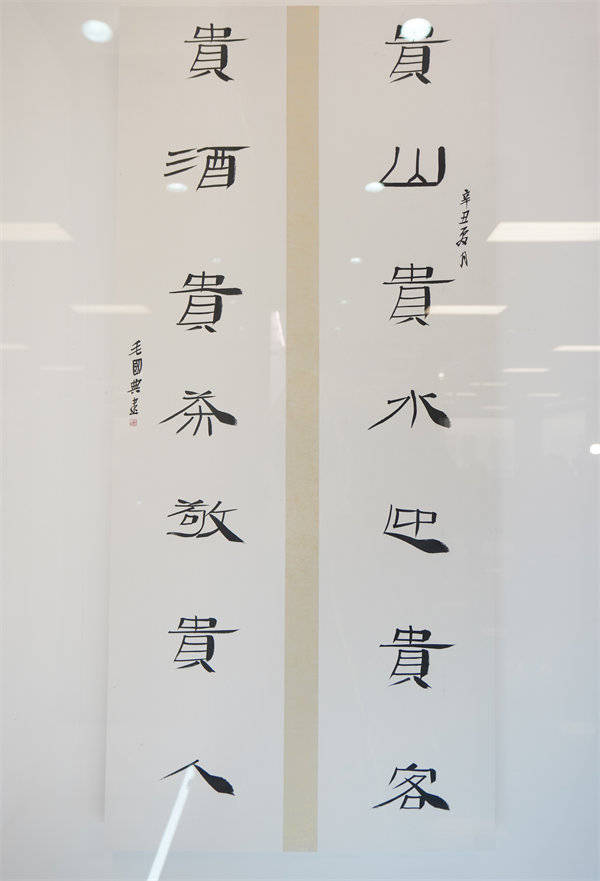 貴山貴水迎貴客
辛丑夏月
貴酒貴茶敬貴人
毛國典書